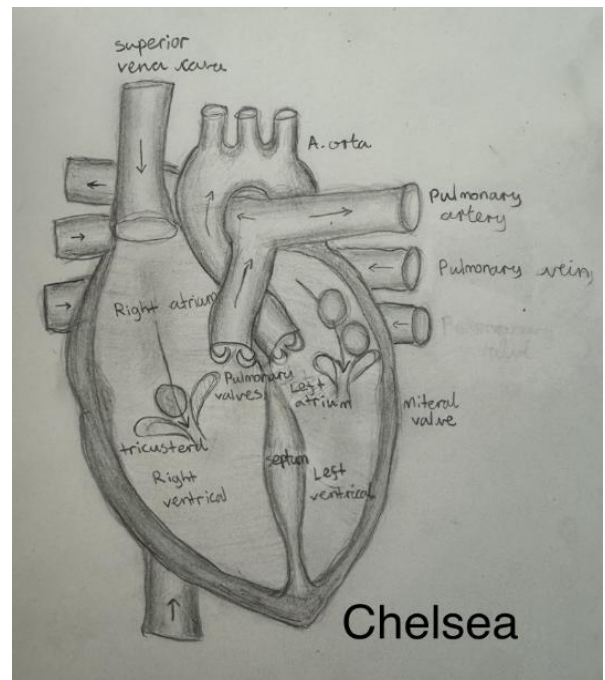 superior
vena cava
A.orta
Pulmonary
artery
Pulmonary vein
Right atrium
Pulmonary
valves
Left
atrium
Miteral
valve
tricusterd
septum
Right
ventrical
Left
ventrical
Chelsea